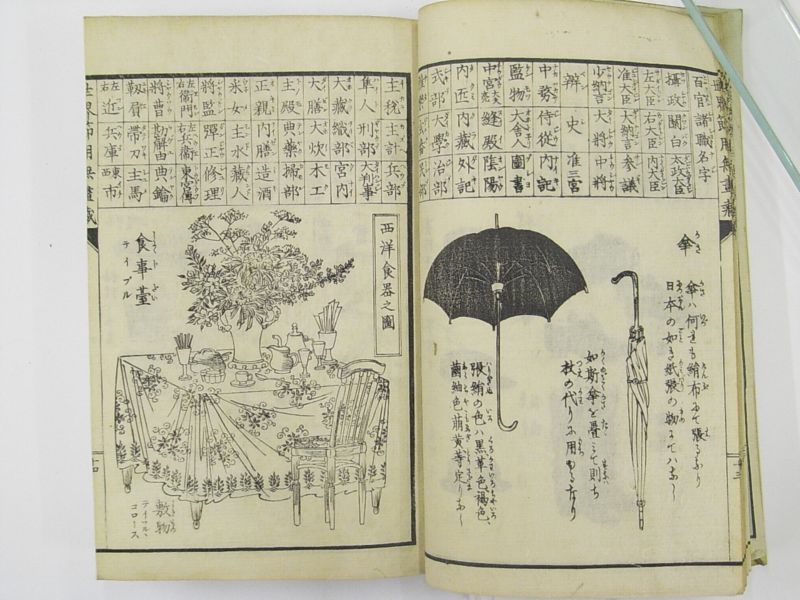 百官諸職名字
攝政 關白 太政大臣
左大臣 右大臣 内大臣
准大臣 大納言 参議
少納言 大将 中将
辨 史 准三宮
中務 侍従 内記
監物 大舎人 圖書
中宮 縫殿 陰陽
内匠 内藏 外記
式部 大學 治部
傘
傘ハ何れも絹布にて張るなり
日本の如き紙張の物にてハなし
如斯傘を疊みて則ち
杖の代りに用ゆるなり
張絹の色ハ黒革色褐色
繭紬色萠黄等定りなし
主税 主計 兵部
隼人 刑部 大判事
大藏 織部 宮内
大膳 大炊 木工
主殿 典藥 掃部
正親 内膳 造酒
采女 主水 藏人
將監 彈正 修理
左衛門 右兵衛 東宮傅
將曹 勘解由 典鑰
靱負 帶刀 主馬
左右近 兵庫 東西市
西洋食器之圖
食事臺
テイブル
敷物
テイブル、
コロース